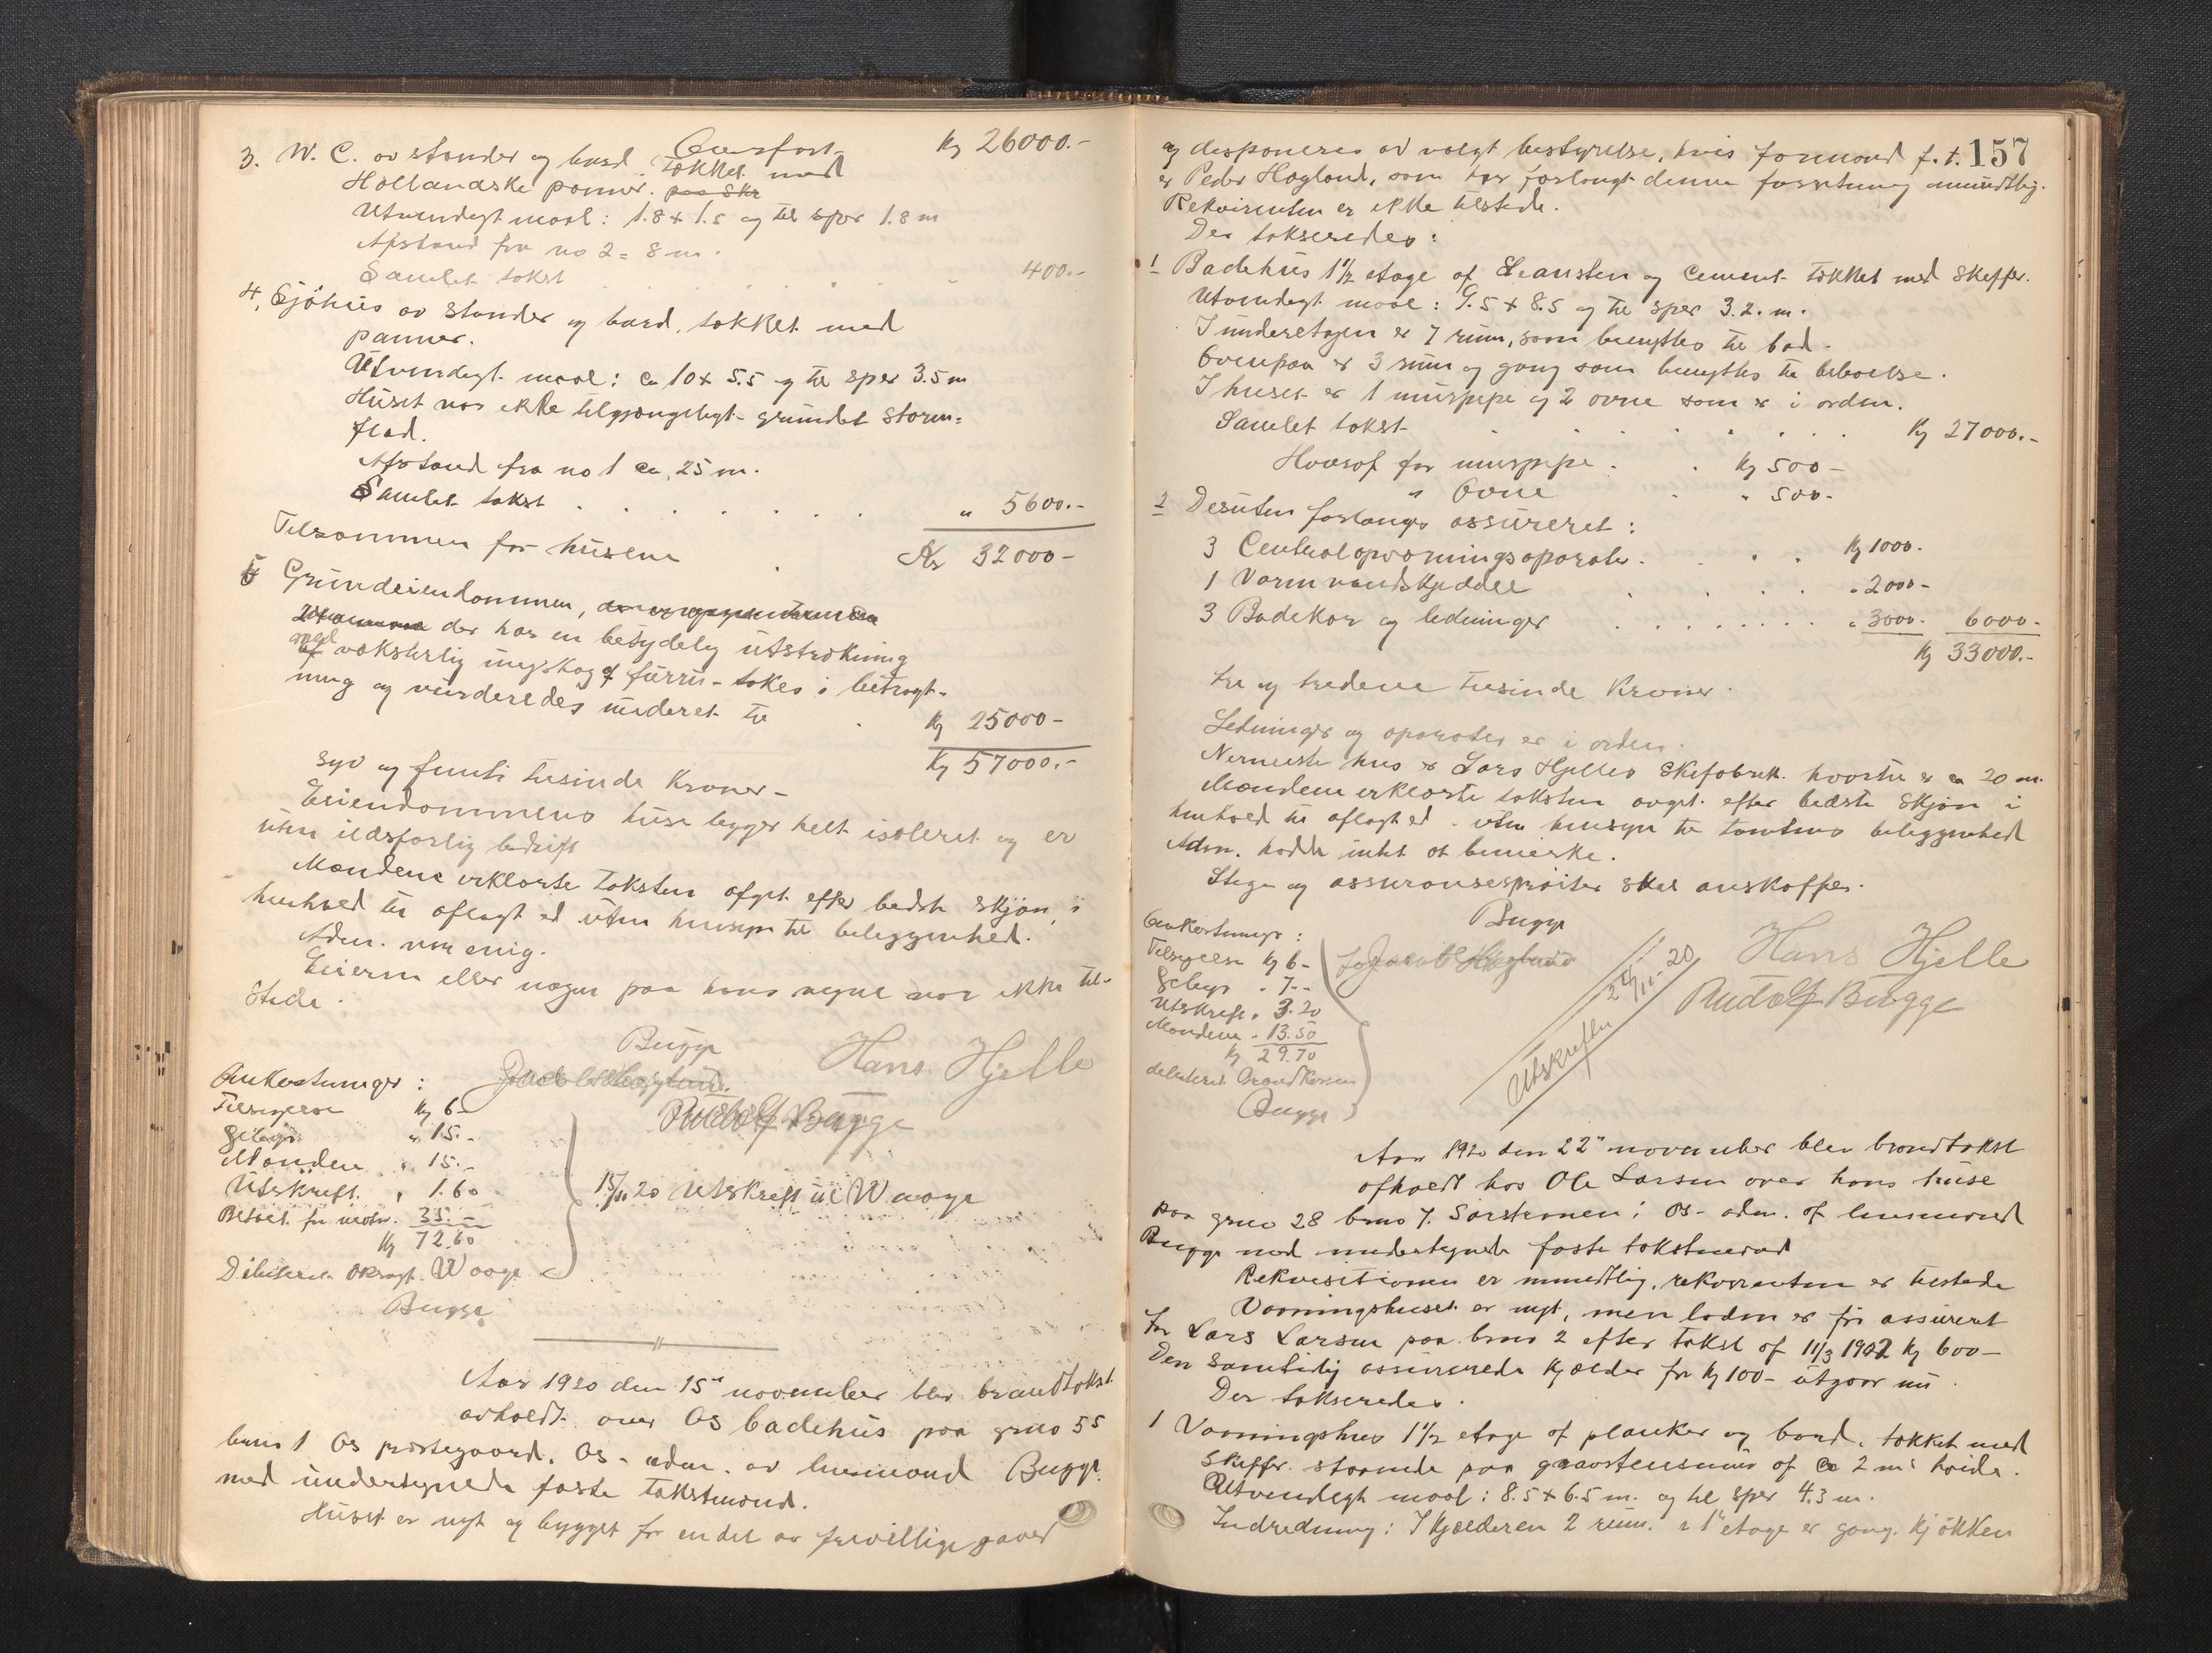 Overført Kr 26000.-
3. W. C. av stender og bord. tækket med
Hollandske panner. paa Skr
Utvendigt maal: 1.8 + 1.5 og til spær 1.8 m
Afstand fra no 2 = 8 m.
Samlet takst 400.-
4. Sjöhus av stender og bord, tækket med
panner.
Utvendigt maal: ca 10 x 5.5 og til sper 3.5 m
Huset var ikke tilgjængeligt grundet storm=
flod.
Afstand fra no 1 ca. 25 m.
Samlet takst " 5600.-
Tilsammen for husene Kr 32000-
5 Grundeiendommen,
der har en betydelig utstrækning
med vøksterlig ungskog af furru - tokes i betragt-
ning og vurderedes underet til Kr 25000-
Kr 57000.-
syv og femti tusinde Kroner-
Eiendommens huse ligger helt isoleret og er
uten ildsfarlig bedrift
Mændene erklærte taksten afgit efter bedste skjøn, i
henhold til aflagt ed uten hensyn til beliggenhed.
Adm. var enig.
Eieren eller nogen paa hans vegne var ikke til-
stede.
Bugge
Hans Hjelle
Rudolf Bugge
Omkostninger:
Tilsigelse Kr 6-
Gebyr " 15.-
Mændene " 15.-
Utskrift " 1.60
Betalt for motor. 35.-
Kr 72.60
Debiteret Waage
Bugge
15/11 20 Utskrift til Waage
Aar 1920 den 15de november blev brandtakst
avholdt over Os badehus paa gruo 55
bruo 1 Os præstegaard, Os - adm. av lensmand Bugge.
med undertegnede faste takstmænd.
Huset er nyt og bygget for en del av frivillige gaver
157
og disponeres av valgt bestyrelse, hvis formand f. t.
er Peder Haglund, som har forlangt denne forretning mundtlig.
Rekvirenten er ikke tilstede.
Der takseredes:
1 Badehus 1 1/2 etage af Leansten og Cement tækket med Skiffer.
Utvendigt maal: 9.5 + 8.5 og til sper 3.2. m.
I underetagen er 7 rum, som benyttes til bad.
Ovenpaa er 3 rum og gang som benyttes til beboelse.
I huset er 1 murpipe og 2 ovne som er i orden.
Samlet takst Kr 27000.-
Hvorav for murpipe Kr 500-
" Ovne " 500-
2 Desuten forlanges assureret:
3 Centralopvarmingsaparater Kr 1000.
1 Varmvandskjeddel " 2000-
3 Badekar og ledninger " 3000. 6000-
Kr 33000.-
tre og tredeve tusinde Kroner.
Ledninger og aparater er i orden.
Nermeste hus er Lars Hjelles Skifabrik. hvortil er ca 20 m.
Mændene erklærte taksten avgit efter bedste skjøn i
henhold til aflagt ed. uten hensyn til tomtens beliggenhed
Adm. hadde intet at bemerke.
Stige og assuransesprøiter skal anskaffes.
Bugge
Hans Hjelle
Rudolf Bugge
Omkostninger:
Tilsigelse Kr 6-
Gebyr " 7--
Utskrift " 3.20
Mændene " 13.50
Kr 29.70
debiteret Brandkassen
Bugge
Utskreften 24/11-20
Aar 1920 den 22de november blev brandtakst
afholdt hos Ole Larsen over hans huse
paa gruo 28 bruo 7. Sørstrønen i Os - adm. af lensmand
Bugge med undertegnede faste takstmænd
Rekvisitionen er mundtlig, rekvirenten er tilstede
Vaaningshuset er nyt, men laden er før assureret
for Lars Larsen paa bruo 2 efter takst af 11/3 1902 Kr 600-
Den samtidig assurerede kjælder for Kr 100- utgaar nu.
Der takseredes.
1 Vaaningshus 1 1/2 etage af planker og bord, tækket med
Skiffer. staaende paa graastensmur af ca 2 m's høide.
Utvendigt maal: 8.5 + 6.5 m. og til sper 4.3 m.
Indredning: I kjælderen 2 rum. i 1ste etage er gang, kjökken